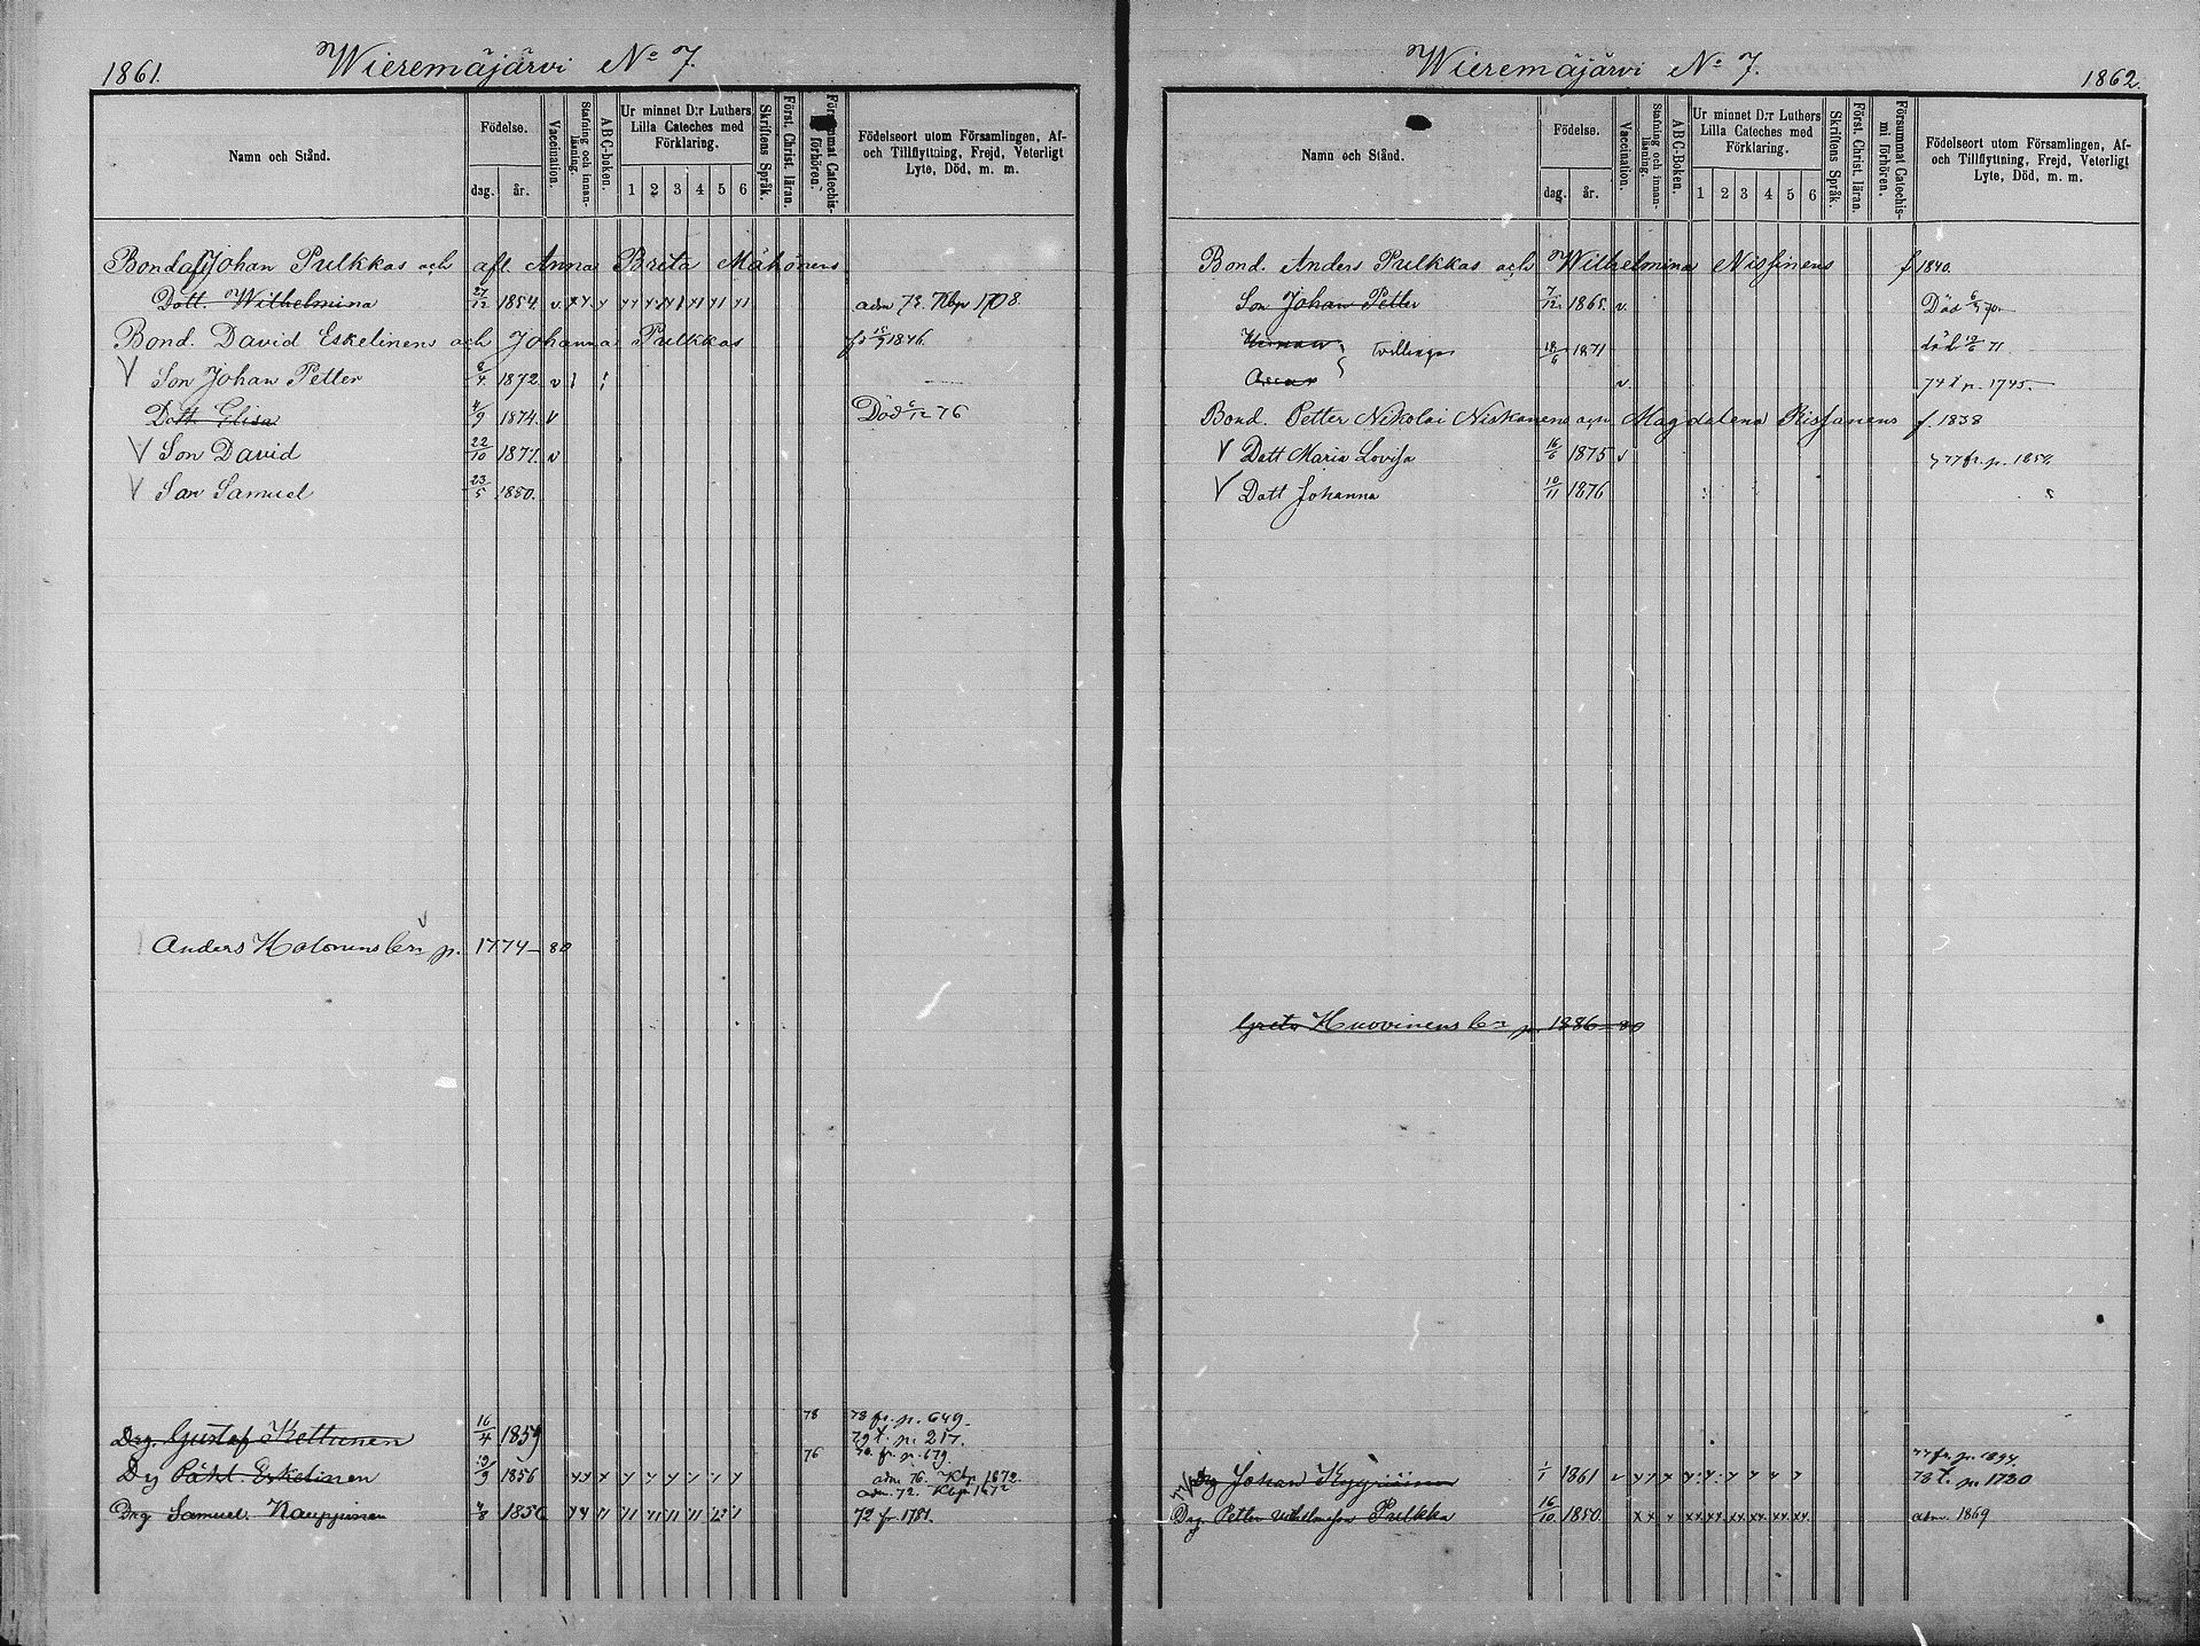 1861.
Wieremäjärvi No 7.
Namn och Stånd.
Födelse.
dag.
år.
Vaccination.
Stafning och innan-
läsning.
ABC-boken.
Ur minnet D:r Luthers
Lilla Cateches med
Förklaring.
1 2 3 4 5 6
Skriftens Språk.
Först. Christ. läran.
Försummat Catechis-
förhören.
Födelseort utom Församlingen, Af-
och Tillflyttning, Frejd, Veterligt
Lyte, Död, m. m.
Bond afl Johan Pulkkas och afl. Anna Brita Mähönens
Dott. Wilhelmina 27/12 1854. v.
Bond. David Eskelinens och Johanna Pulkkas 1846.
V Son Johan Petter 1872 v
Dott Elisa 4/9 1874. v Död 76
V Son David 22/10 1877. v
V Son Samuel 23/5 1880.
Anders p. 1774 - 80
78 78 fr. p. 649.
Drg. Gustaf Kettunen 16/4 1859 79 t. p. 217.
76 fr. p. 679.
Dg Påhl. Eskelinen 1856 adm 76. Kbp 1672.
adm. 72. Kbp 1672
Drg Samuel Kauppinen 72 fr 1781.
Wieremäjärvi No 7.
1862.
Namn och Stånd.
Födelse.
dag.
år.
Vaccination.
Stafning och innan-
läsning.
ABC-Boken.
Ur minnet D:r Luthers
Lilla Cateches med
Förklaring.
1 2 3 4 5 6
Skriftens Språk.
Först. Christ. läran.
Försummat Catechis-
mi förhören.
Födelseort utom Församlingen, Af-
och Tillflyttning, Frejd, Veterligt
Lyte, Död, m. m.
Bond. Anders Pulkkas och Wilhelmina Nissinens f 1840.
Son Johan Petter 7/12 1865. v. Död 70.
Herman Tvillingar 18/6 1871 död 71
Oscar v 74 t p. 1745.
Bond. Petter Nikolai Niskanens och Magdalena Rissanens f. 1838
V Dott Maria Lovisa 16/6 1875 v 77 fr. p.
V Dott Johanna 10/11 1876
Greta Huovinens p. 1886 - 80
77 fr. p. 1894.
Drg Johan 1/1 1861 v 78 t. p. 1730
Drg. Petter Wilhelmsson Pulkka 16/10 1850. adm. 1869